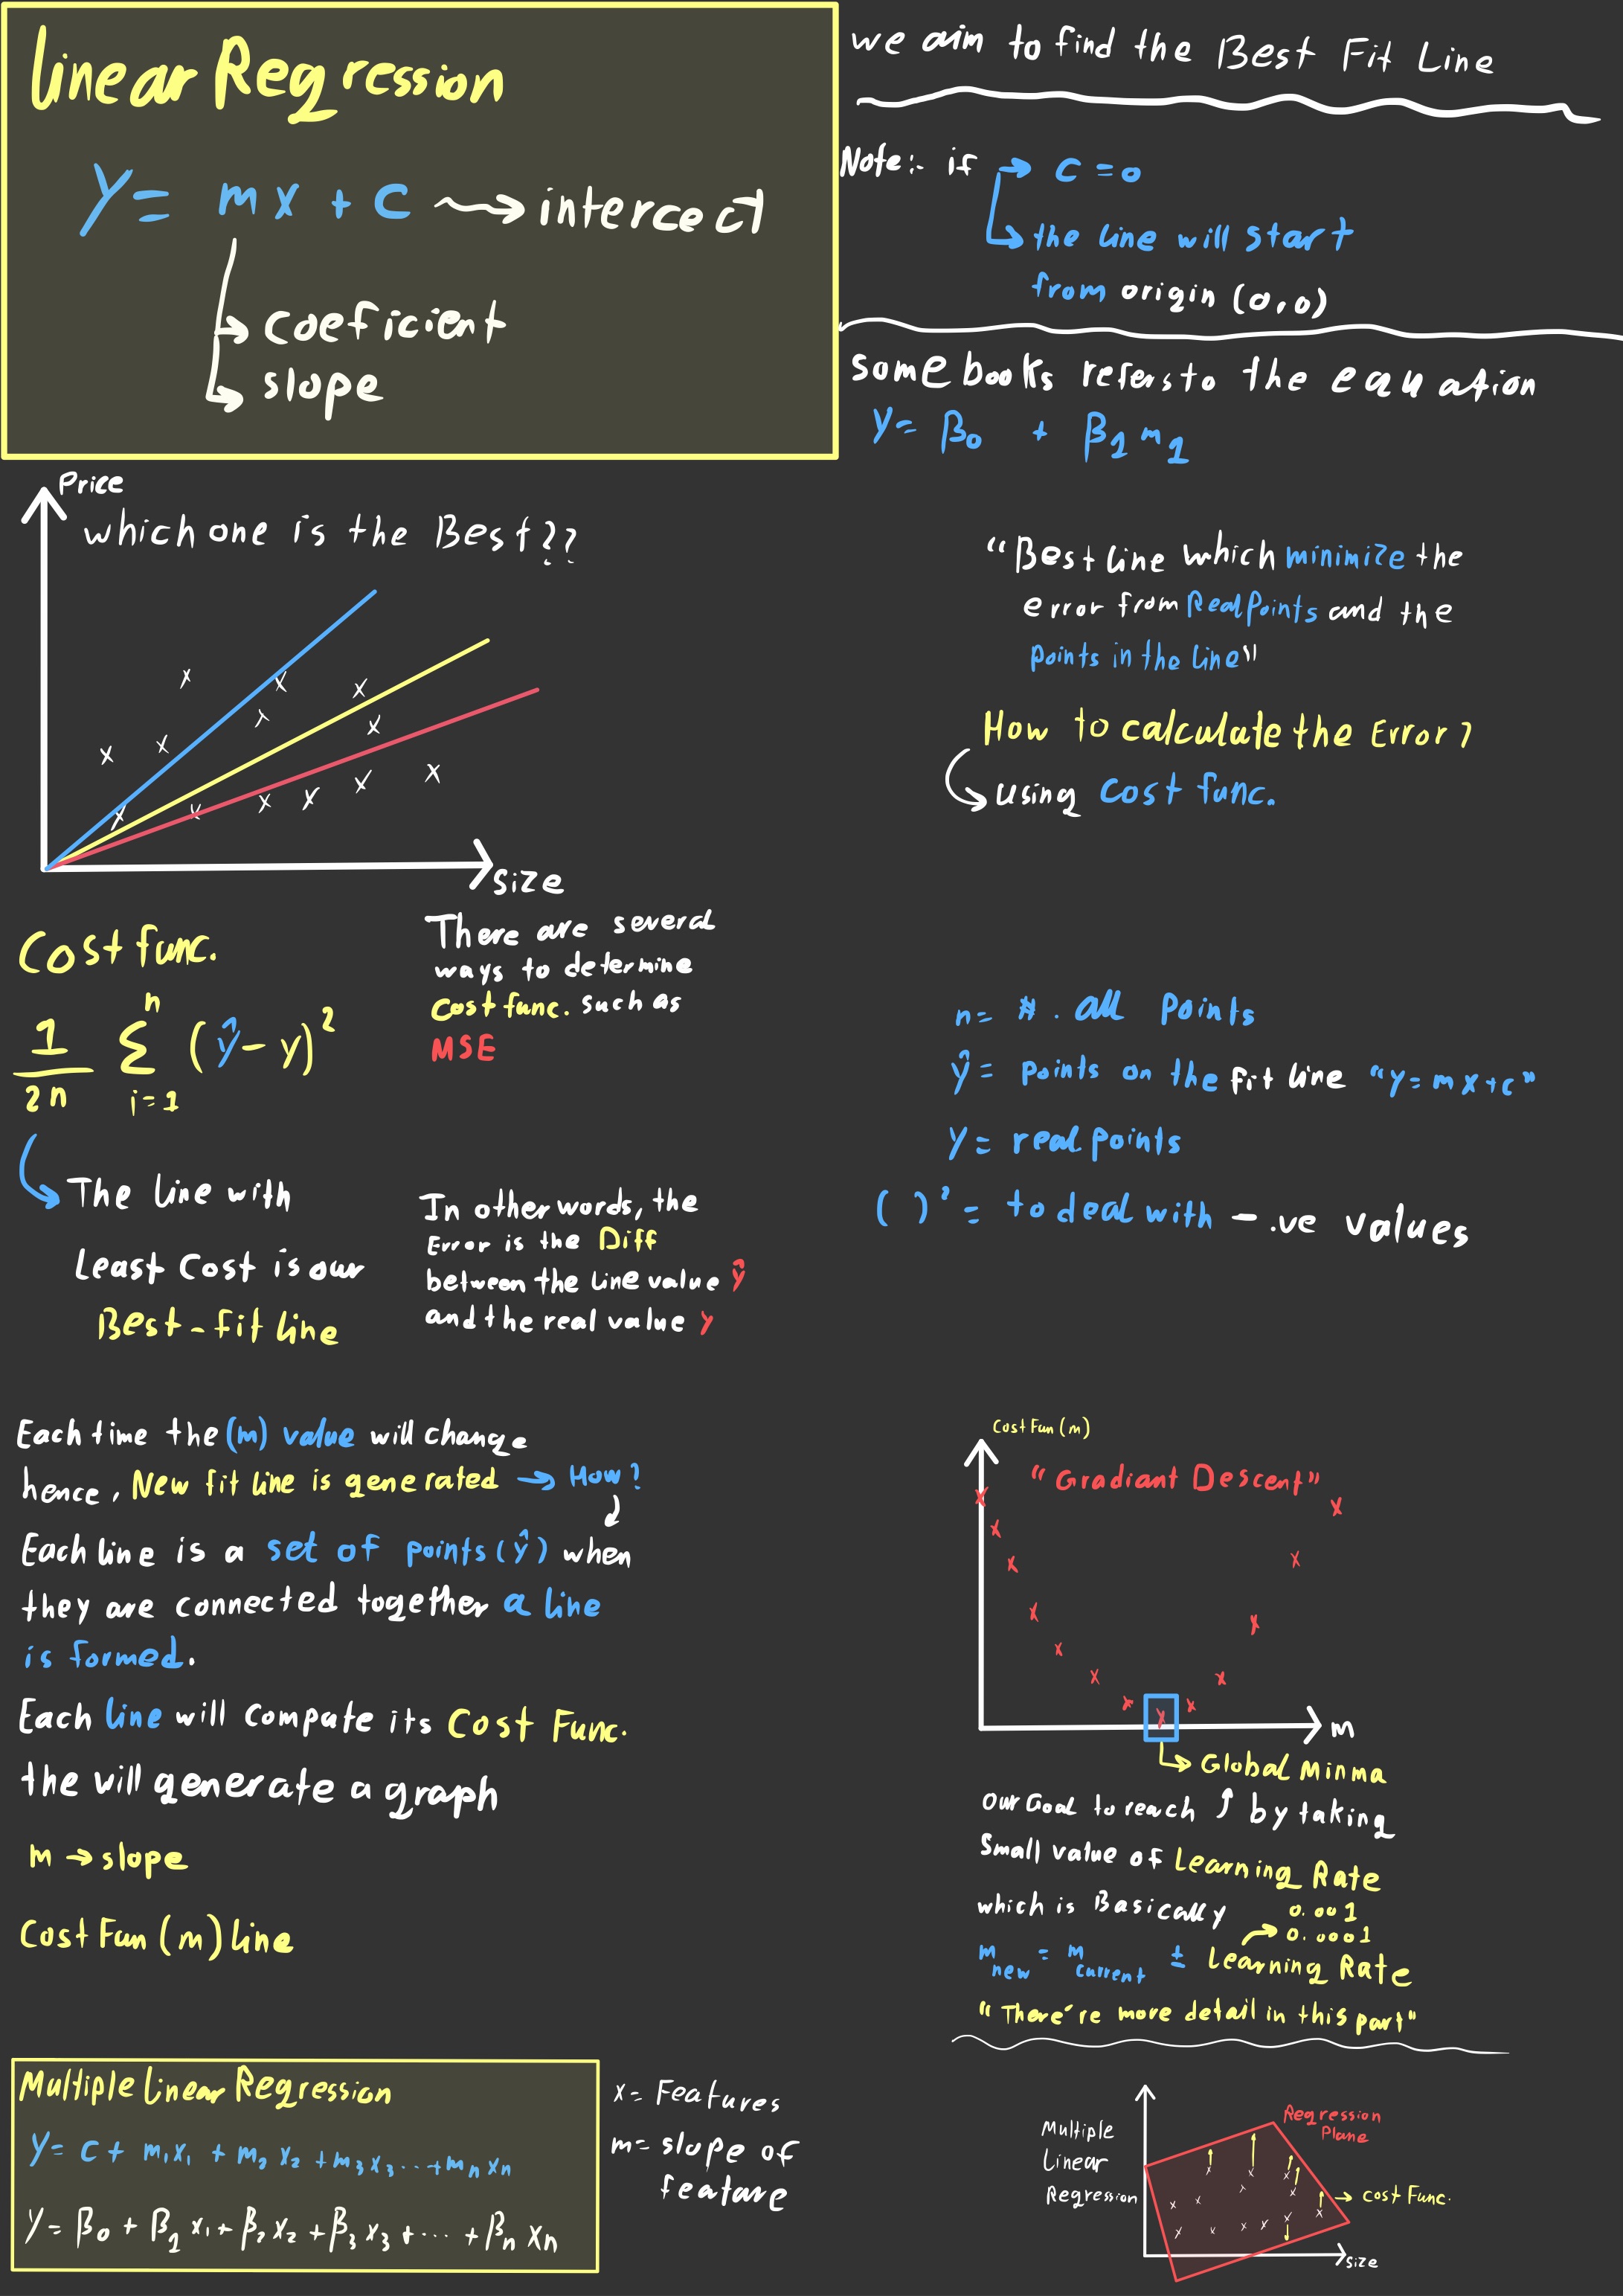 Linear Regression
Y = mx + c → intercect
coeficient
slope
we aim to find the Best Fit Line
Note:- if → c = 0
the line will start
from origin (0,0)
some books refers to the equation
Y = β0 + β1 m1
Price
which one is the Best??
size
"Best line which minimize the
error from Real Points and the
points in the line"
How to calculate the Error?
using cost func.
Cost func.
1/2n Σ i=1 n (ŷ - y)²
There are several
ways to determine
cost func. such as
MSE
n = #. all points
ŷ = points on the fit line "y = mx + c"
y = real points
( )² = to deal with -.ve values
The line with
Least Cost is our
Best-fit line
In other words, the
Error is the Diff
between the line value ŷ
and the real value y
Each time the (m) value will change
hence, New fit line is generated → How?
Each line is a set of points (ŷ) when
they are connected together a line
is formed.
Each line will compute its Cost Func.
the will generate a graph
m → slope
Cost Fun (m) line
Cost Fun (m)
"Gradiant Descent"
m
Global Minma
our Goal to reach ↑ by taking
Small value of Learning Rate
which is Basically
0.001
0.0001
m new = m current ± Learning Rate
"There're more detail in this part"
Multiple Linear Regression
Y = c + m1x1 + m2x2 + m3x3...+mnxn
Y = β0 + β1x1 + β2x2 + β3x3 + ... + βnxn
x = Features
m = slope of
feature
Multiple
Linear
Regression
Regression
Plane
cost Func.
size